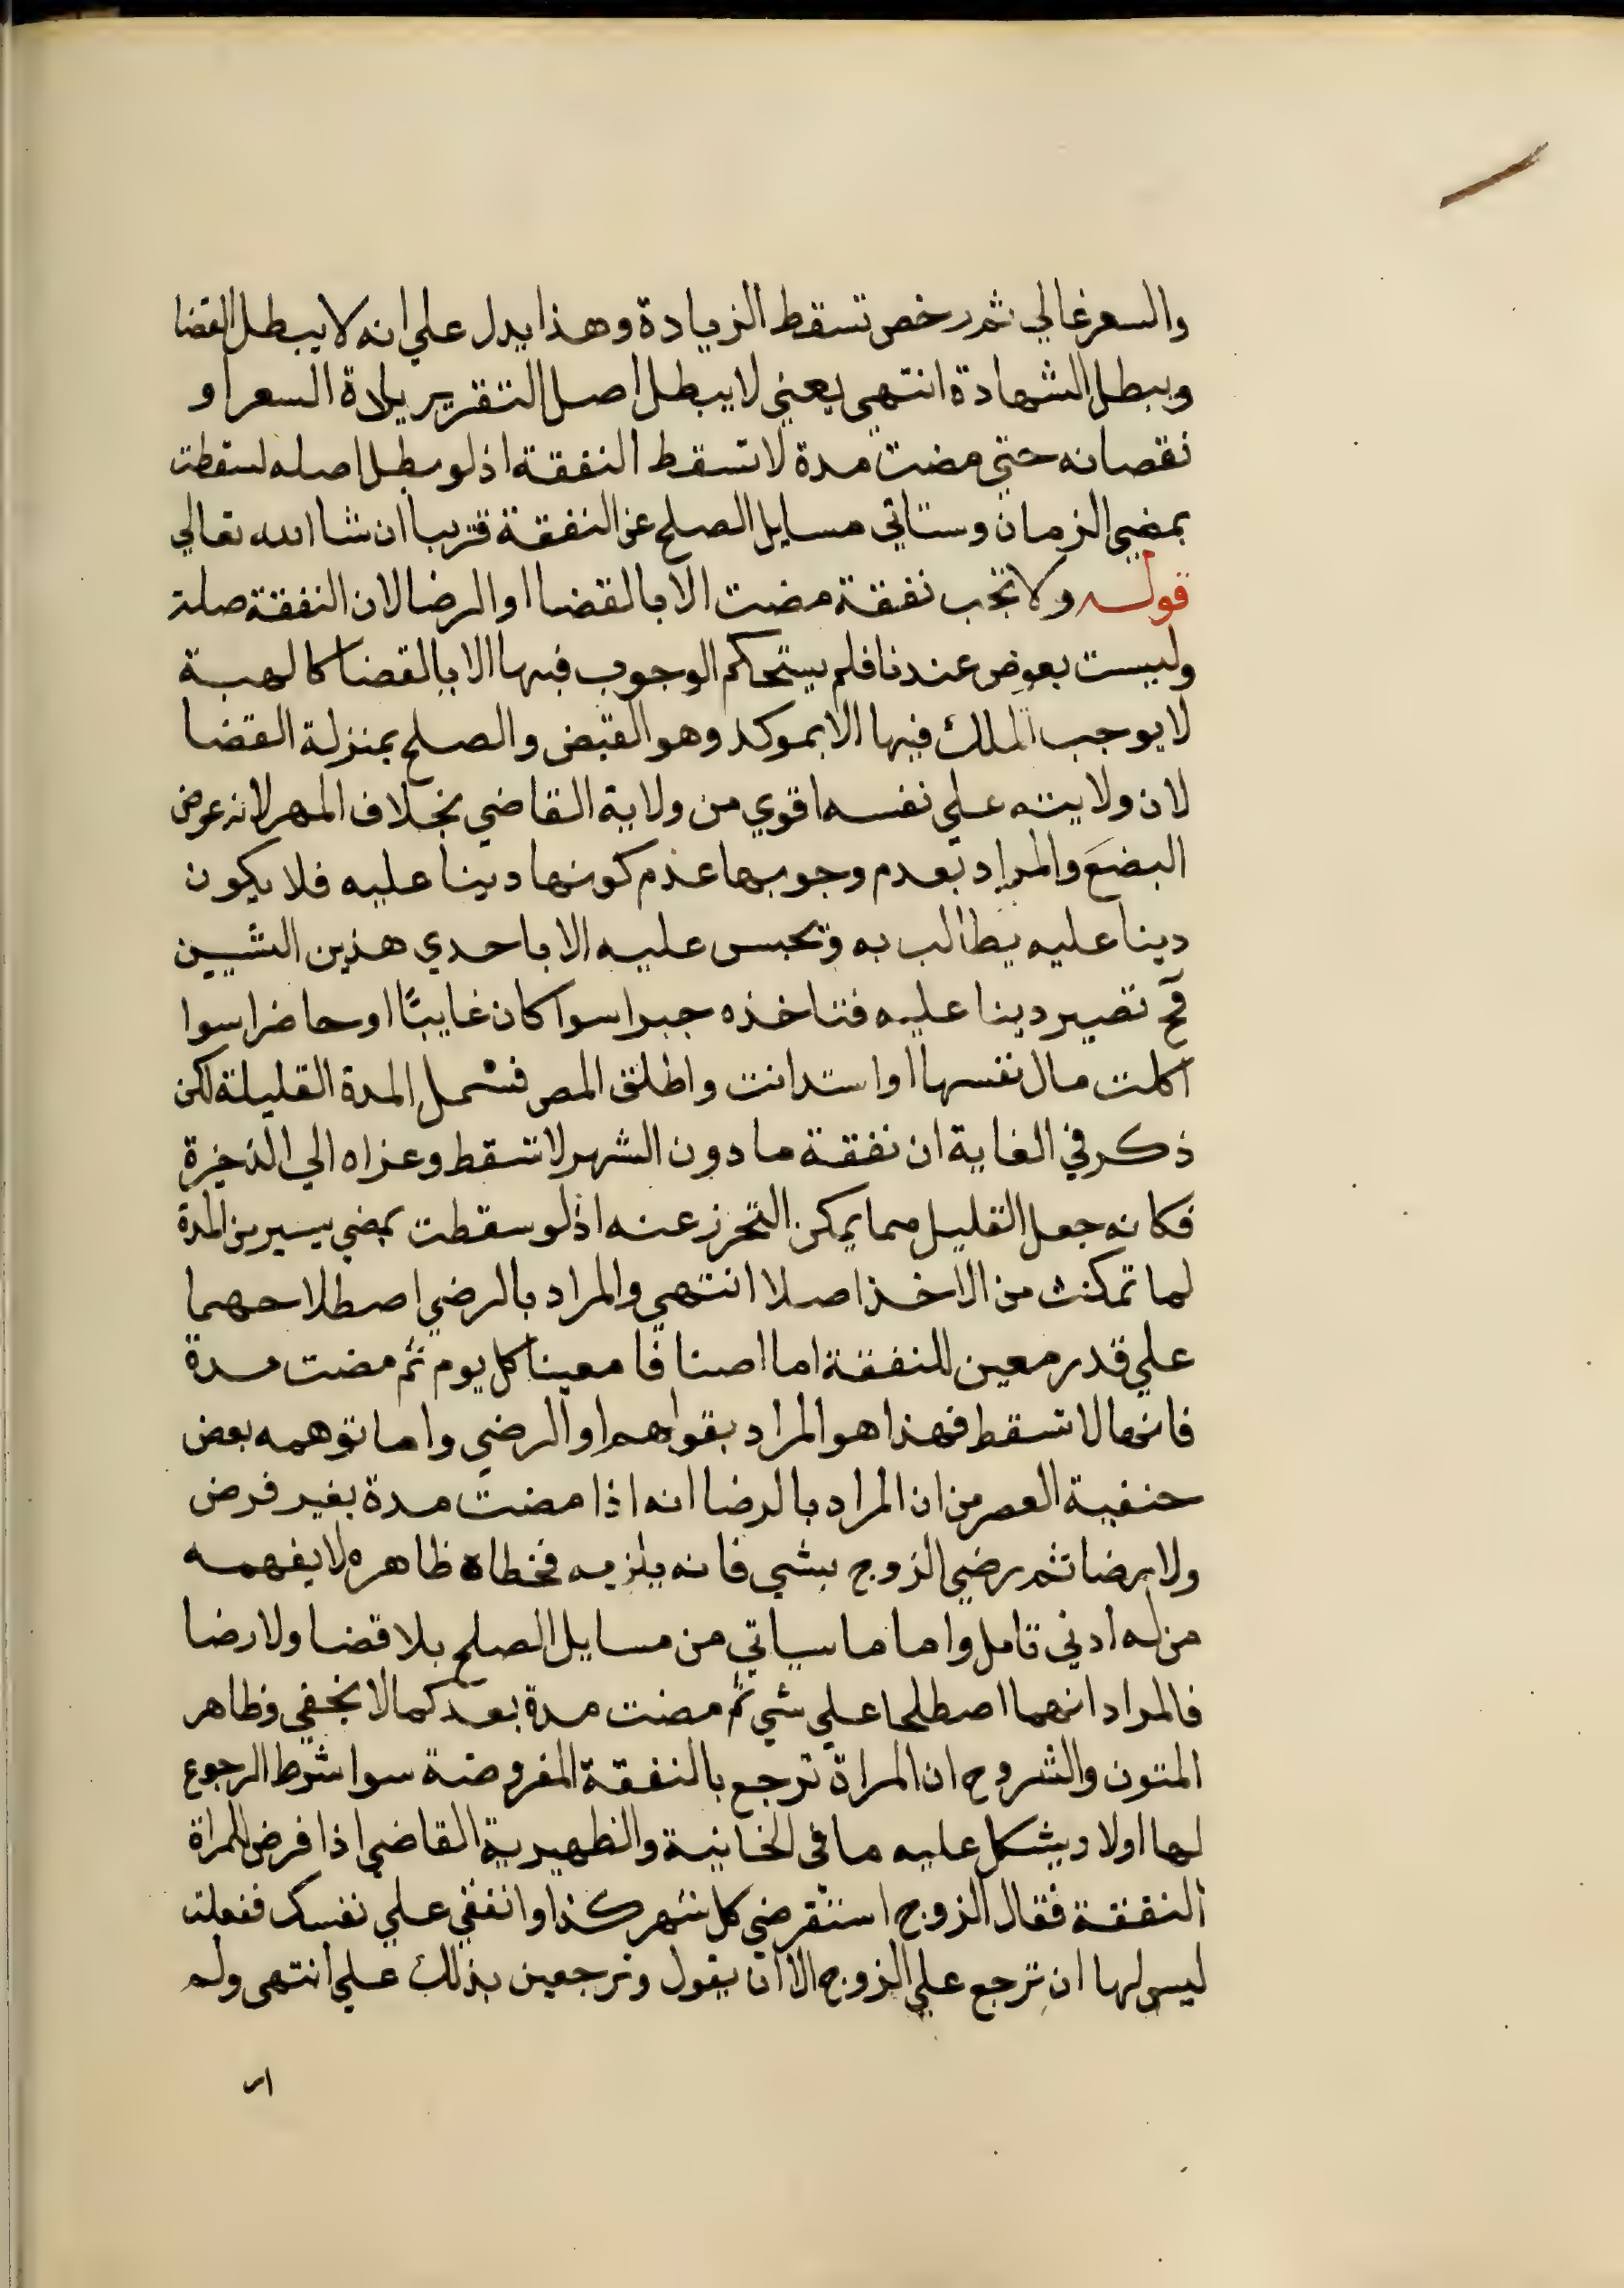 والسعر غالي ثم رخص تسقط الزيادة وهذا يدل علي انه لا يبطل القضا
ويبطل الشهادة انتهي يعني لا يبطل اصل التقرير بزيادة السعر او
نقصانه حتي مضت مدة لا تسقط النفقة اذ لو بطل اصله لسقطت
بمضي الزمان وستاتي مسايل الصلح عن النفقة قريبا ان شا الله تعالي
قوله ولا تجب نفقة مضت الا بالقضا او الرضا لان النفقة صلة
وليست بعوض عندنا فلم يستحكم الوجوب فيها الا بالقضا كالهبة
لا يوجب الملك فيها الا بموكد وهو القبض والصلح بمنزلة القضا
لان ولايته علي نفسه اقوي من ولاية القاضي بخلاف المهر لانه عوض
البضع والمراد بعدم وجوبها عدم كونها دينا عليه فلا يكون
دينا عليه يطالب به ويحبس عليه الا باحدي هذين الشيين
فح تصير دينا عليه فتاخذه جبرا سوا كان غايبًا او حاضرا سوا
اكلت مال نفسها او استدانت واطلق المص فشمل المدة القليلة لكن
ذكر في الغاية ان نفقة ما دون الشهر لا تسقط وعزاه الي الذخيرة
فكانه جعل القليل مما يمكن التحرز عنه اذ لو سقطت بمضي يسير من المدة
لما تمكنت من الاخذ اصلا انتهي والمراد بالرضي اصطلاحهما
علي قدر معين للنفقة اما اصنافا معينا كل يوم ثم مضت مدة
فانها لا تسقط فهذا هو المراد بقولهم او الرضي واما توهمه بعض
حنفية العصر من ان المراد بالرضا انه اذا مضت مدة بغير فرض
ولا رضا ثم رضي الزوج بشي فانه يلزمه فخطاه ظاهره لا يفهمه
من له ادني تامل واما ما سياتي من مسايل الصلح بلا قضا ولا رضا
فالمراد انهما اصطلحا علي شي ثم مضت مدة بعد كما لا يخفي وظاهر
المتون والشروح ان المراة ترجع بالنفقة المفروضة سوا شرط الرجوع
لها اولا ويشكل عليه ما في الخانية والظهيرية القاضي اذا فرض للمراة
النفقة فقال الزوج استقرضي كل شهر كذا وانفقي علي نفسك ففعلت
ليس لها ان ترجع علي الزوج الا ان يقول وترجعين بذلك علي انتهي ولم